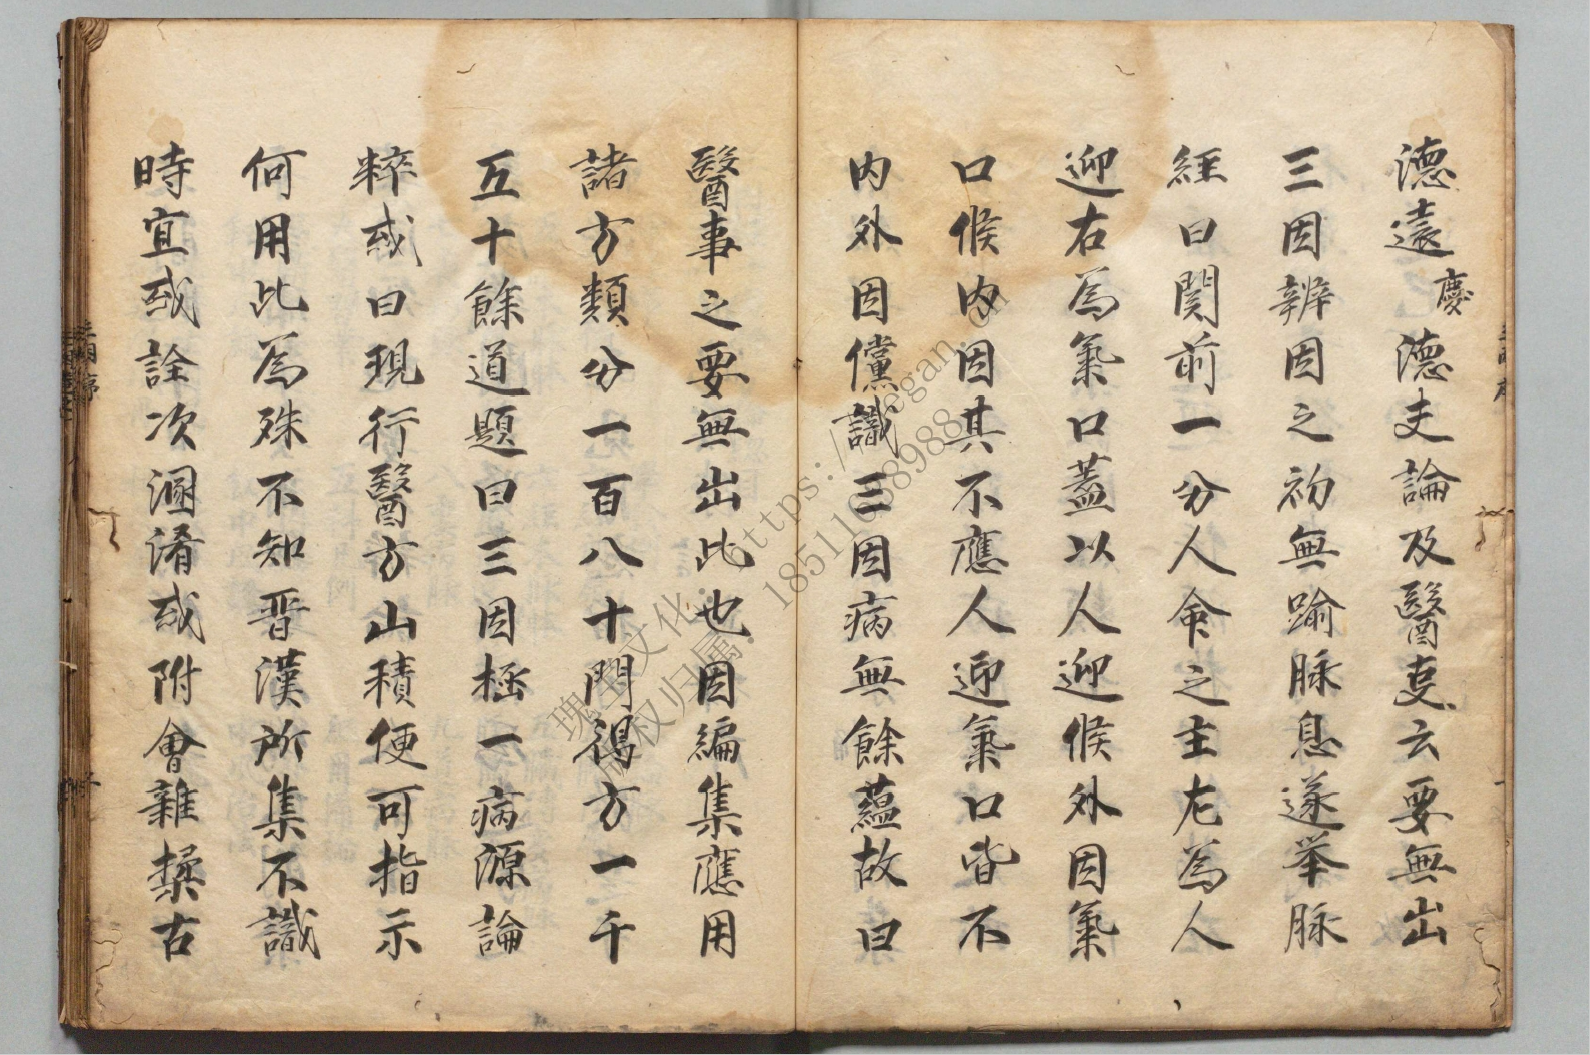 德遠慶德夫論及醫叓云要無出
三因辨因之初無踰脉息遂举脉
經曰関前一分人命之主左為人
迎右為氣口蓋以人迎候外因氣
口候內因其不應人迎氣口皆不
內外因儻識三因病無餘蘊故曰
醫事之要無出此也因編集應用
諸方類分一百八十門得方一千
五十餘道題曰三因極一病源論
粹或曰現行醫方山積便可指示
何用此為殊不知晋漢所集不識
時宜或詮次溷淆或附會雜揉古
瑰宝文化: https://
版权归属: 18511038988